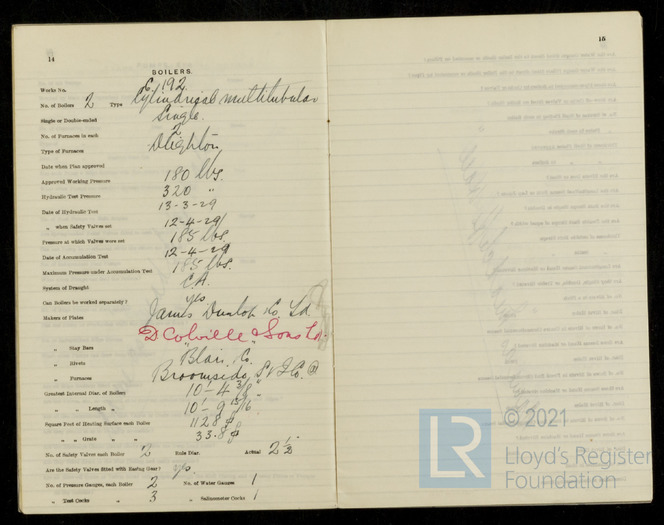 14
BOILERS.
Works No. 6192
No. of Boilers 2 Type Cylindrical multitubular
Single or Double-ended Single.
No. of Furnaces in each 2
Type of Furnaces Deighton
Date when Plan approved
Approved Working Pressure 180 lbs.
Hydraulic Test Pressure 320 "
Date of Hydraulic Test 13-3-29
" when Safety Valves set 12-4-29
Pressure at which Valves were set 185 lbs.
Date of Accumulation Test 12-4-29
Maximum Pressure under Accumulation Test 185 lbs.
System of Draught C.A.
Can Boilers be worked separately? yes
Makers of Plates James Dunlop & Co. Ld.
D Colville & Sons Ld.
" Stay Bars "
" Rivets Blair Co.
" Furnaces Broomside
Greatest Internal Diam. of Boilers 10'- 4 3/8"
" " Length " 10'- 9 13/16"
Square Feet of Heating Surface each Boiler 1128
" " Grate " " 33.8
No. of Safety Valves each Boiler 2 Rule Diam. Actual 2 1/2
Are the Safety Valves fitted with Easing Gear? yes.
No. of Pressure Gauges, each Boiler 2 No. of Water Gauges 1
" Test Cocks " 3 " Salinometer Cocks 1
15
LR
© 2021
Lloyd's Register
Foundation